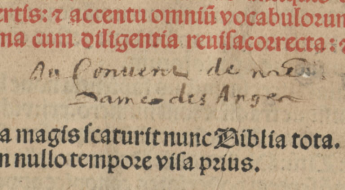 ertis: ⁊ accentu omniũ vocabulorum
ma cum diligentia reuisacorrecta: ⁊
Au Convent de nr̃e
Dame des Anges
a magis scaturit nunc Biblia tota.
n nullo tempore visa prius.